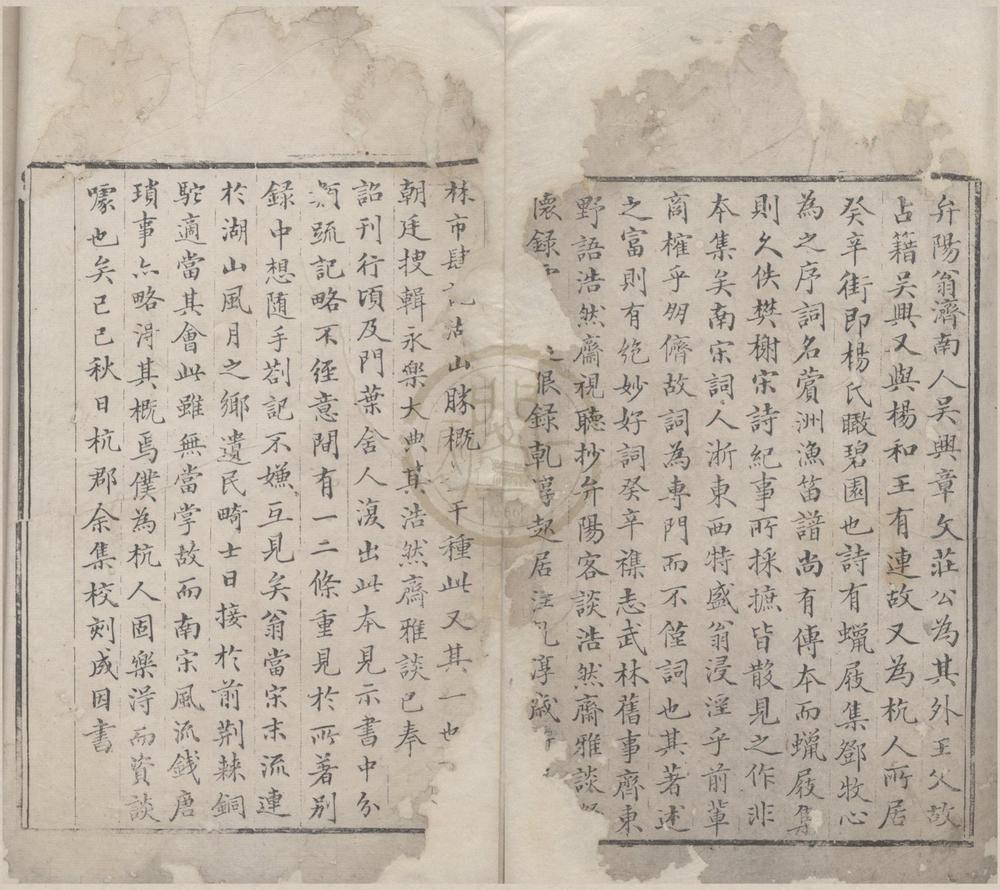 弁陽翁濟南人吴興章文莊公為其外王父故
占籍吴興又與楊和王有連故又為杭人所居
癸辛街即楊氏瞰碧園也詩有蠟屐集鄧牧心
為之序詞名薲洲漁笛譜尚有傳本而蠟屐集
則久佚樊榭宋詩紀事所採摭皆散見之作非
本集矣南宋詞人浙東西特盛翁浸淫乎前軰
商榷乎朋儕故詞為專門而不僅詞也其著述
之富則有絶妙好詞癸辛襍志武林舊事齊東
野語浩然齋視聽抄弁陽客談浩然齋雅談
懷錄之退錄乹淳起居注乾淳歲
林市肆記湖山勝概十種此又其一也
朝廷捜輯永樂大典其浩然齋雅談已奉
詔刊行頃及門葉舍人復出此本見示書中分
疏記略不經意間有一二條重見於所著别
錄中想随手劄記不嫌互見矣翁當宋末流連
於湖山風月之鄉遺民畸士日接於前荆棘銅
駝適當其會此雖無當掌故而南宋風流錢唐
瑣事亦略淂其概焉僕為杭人固樂淂而資談
噱也矣己巳秋日杭郡余集校刻成因書